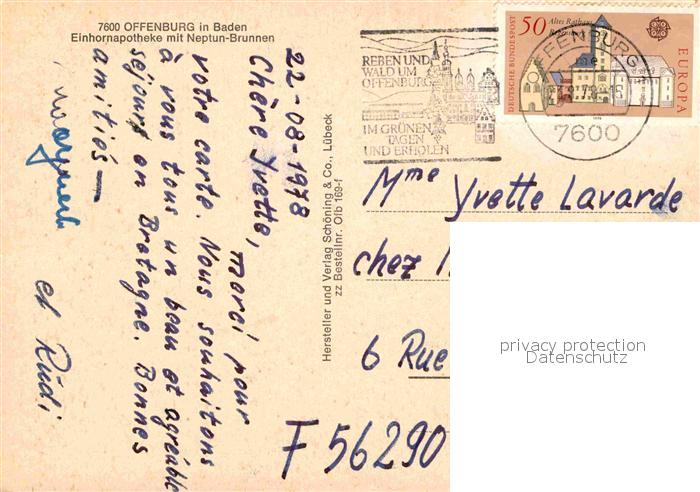 7600 OFFENBURG in Baden
Einhornapotheke mit Neptun-Brunnen
22-08-1978
Chère Yvette,
merci pour
votre carte. Nous souhaitons
à vous tous un beau et agréable
séjour en Bretagne. Bonnes
amitiés
et Rüdi
Hersteller und Verlag Schöning & Co., Lübeck
zz Bestellnr. Ofb 169-f
REBEN UND
WALD UM
OFFENBURG
IM GRÜNEN
TAGEN
UND ERHOLEN
DEUTSCHE BUNDESPOST
50
Altes Rathaus
EUROPA
OFFENBURG
7600
Mme Yvette Lavarde
chez
6 Rue
F 56290
privacy protection
Datenschutz